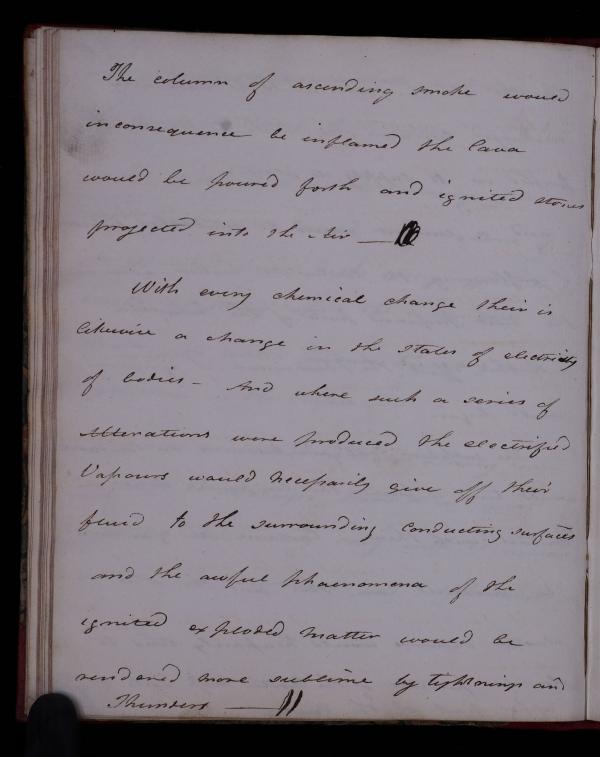 The column of ascending smoke would
inconsequence be inflamed the lava
would be poured forth and ignited stones
projected into the Air —
With every chemical change their is
likewise a change in the states of electricity
of bodies – And where such a series of
Alterations were produced the electrified
Vapours would necessarily give off their
fluid to the surrounding conducting surfaces
and the awful phaenomena of the
ignited exploded matter would be
rendered more sublime by lightnings and
Thunders —